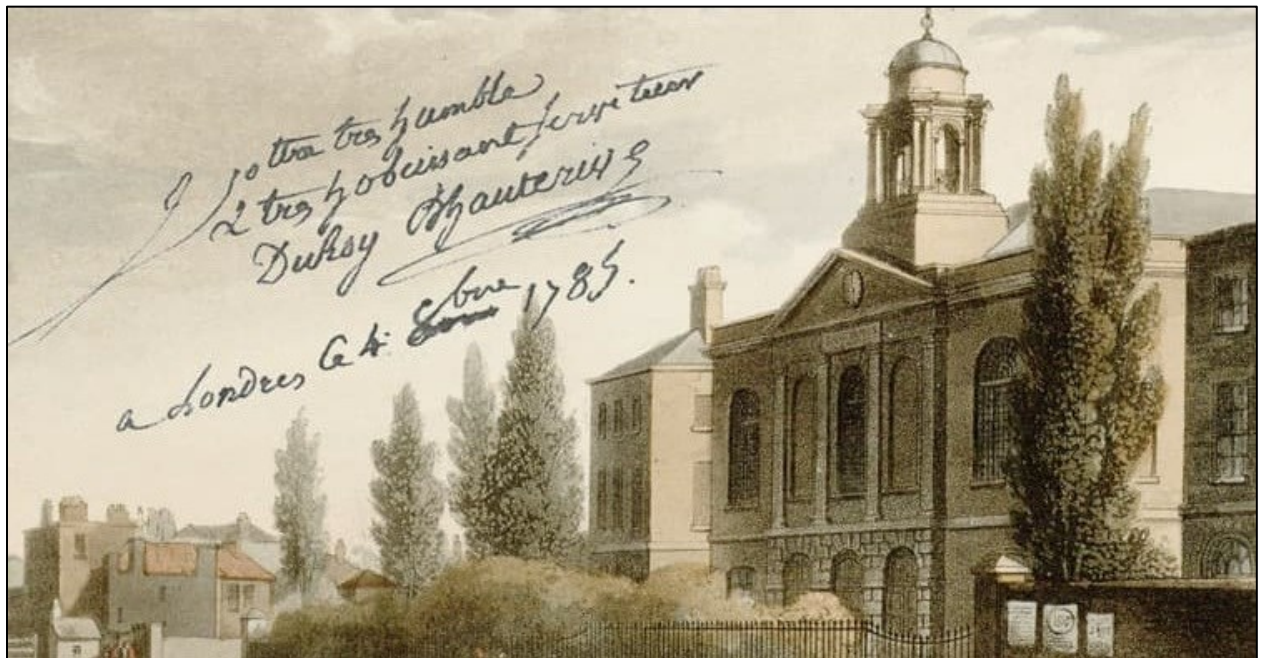 votre tres humble
& tres hobeissant serviteur
DuRoy Dhauterive
a Londres Ce 4. 8bre 1785.